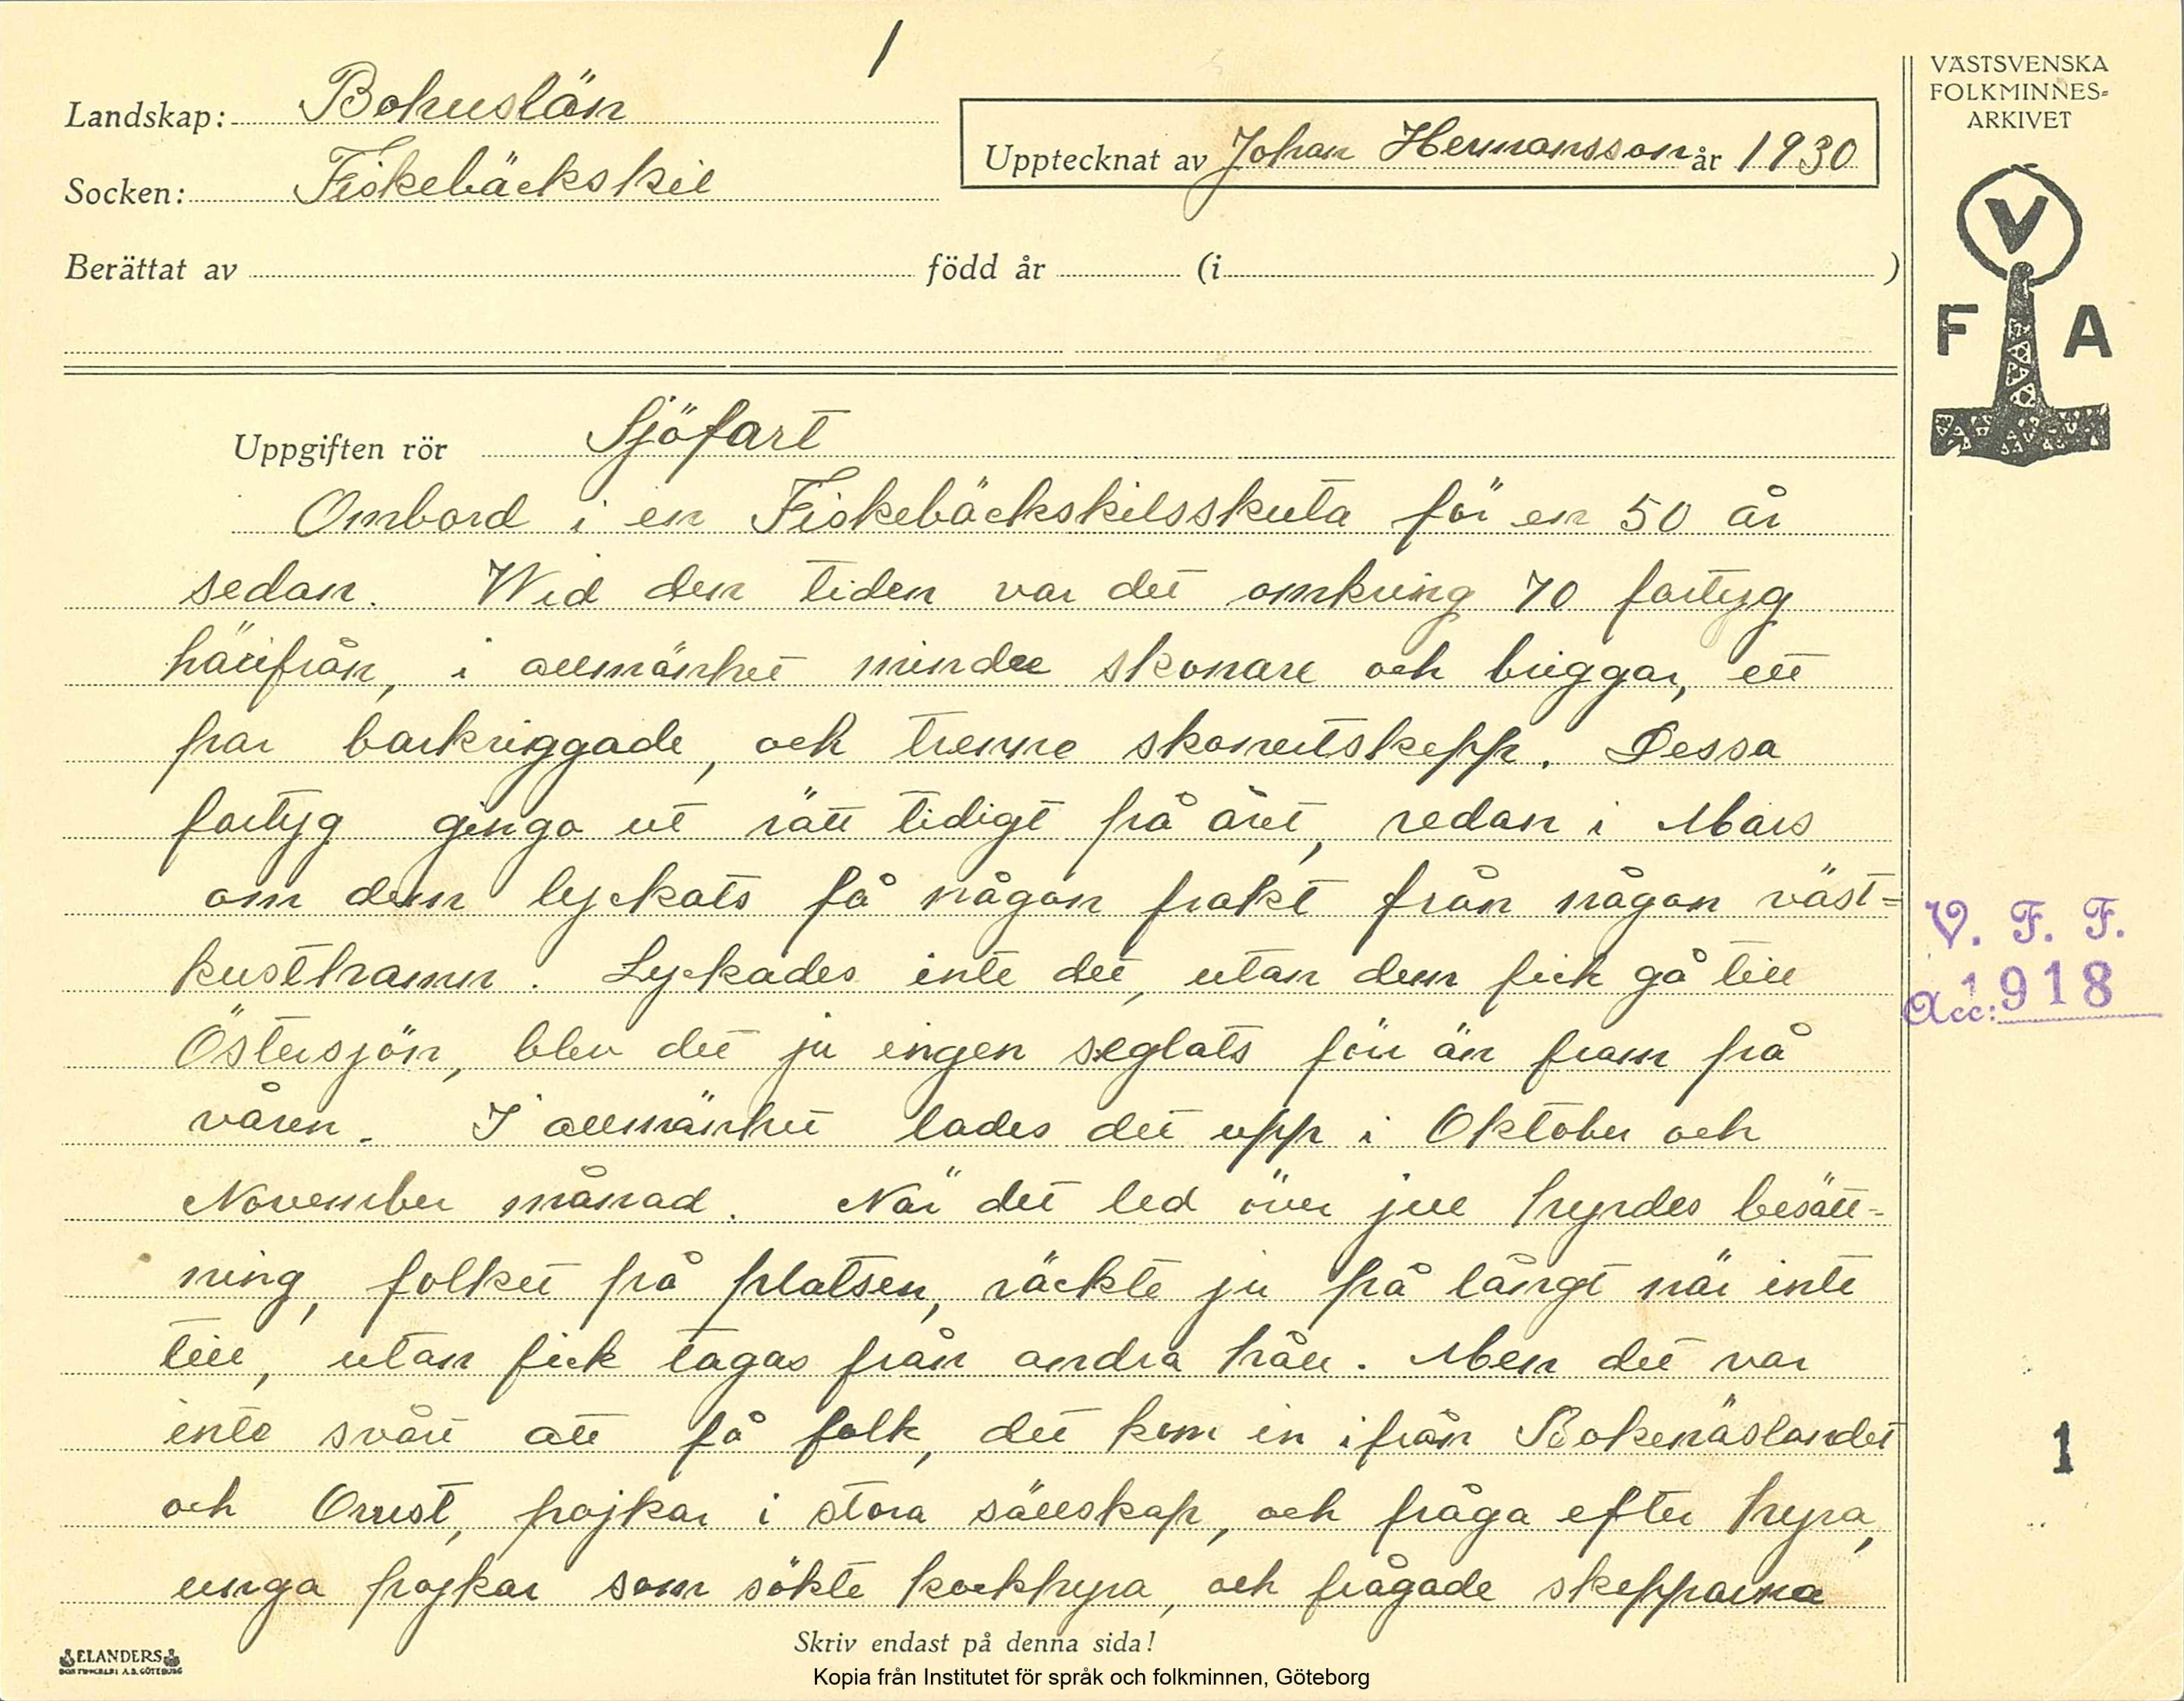 1
Landskap: Bohuslän
Socken: Fiskebäckskil
Upptecknat av Johan Hermansson år 1930
Berättat av född år (i )
VÄSTSVENSKA
FOLKMINNES-
ARKIVET
V
F A
Uppgiften rör Sjöfart
Ombord i en Fiskebäckskilsskuta för en 50 år
sedan. Wid den tiden var det omkring 70 fartyg
härifrån, i allmänhet mindre skonare och briggar, ett
par barkriggade, och trenne skonertskepp. Dessa
fartyg gingo ut rätt tidigt på året, redan i Mars
om dem lyckats få någon frakt från någon väst-
kusthamn. Lyckades inte det, utan dem fick gå till
Östersjön, blev det ju ingen seglats förr än fram på
våren. I allmänhet lades det upp i Oktober och
November månad. När det led över jul hyrdes besätt-
ning, folket på platsen, räckte ju på långt när inte
till, utan fick tagas från andra håll. Men det var
inte svårt att få folk, det kom in ifrån Bokenäslandet
och Orust, pojkar i stora sällskap, och fråga efter hyra,
unga pojkar som sökte kockhyra, och frågade skepparna
V. F. F.
Acc: 1918
1
ELANDERS
BOKTRYCKERI A.B. GÖTEBORG
Skriv endast på denna sida!
Kopia från Institutet för språk och folkminnen, Göteborg